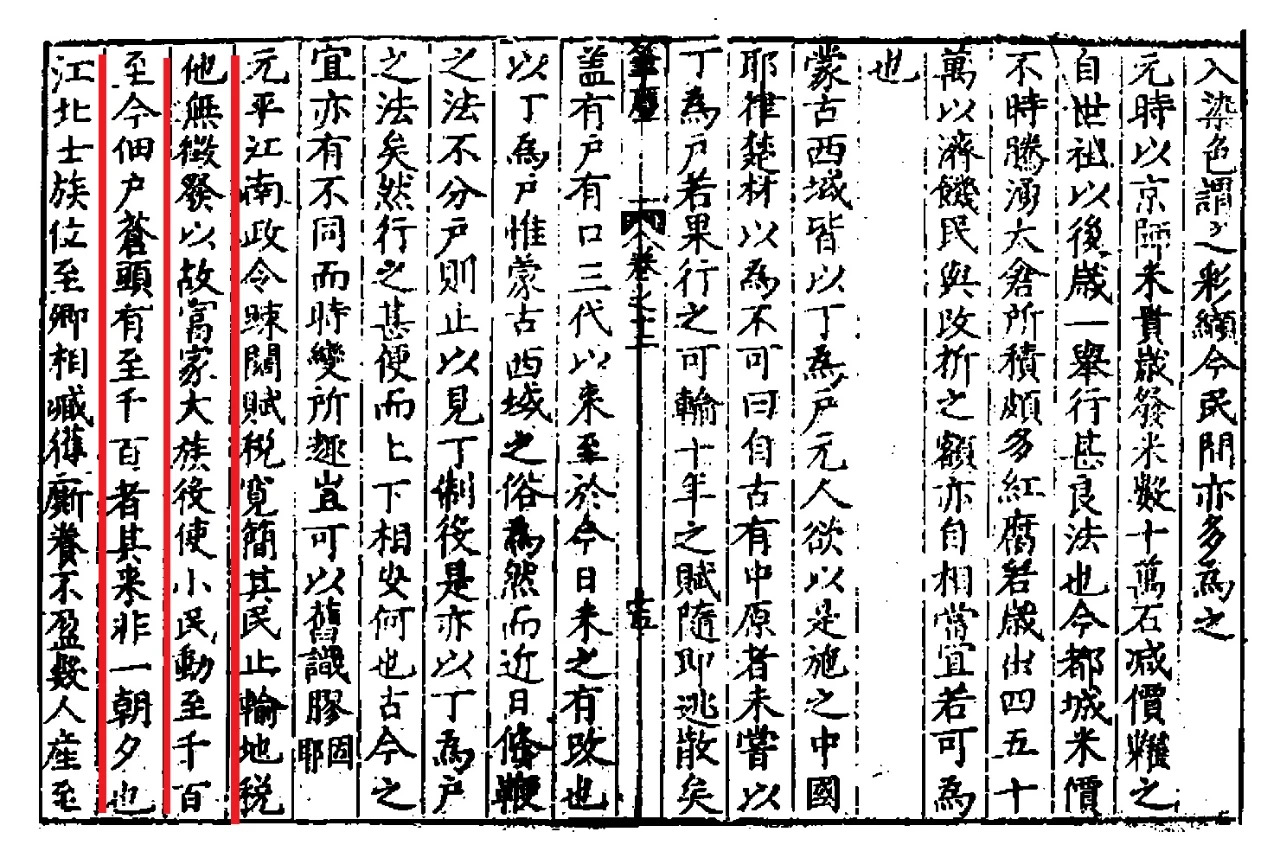 入染色謂之彩纈今民間亦多為之
元時以京師米貴歲發米數十萬石減價糶之
自世祖以後歲一舉行甚良法也今都城米價
不時騰湧太倉所積頗多紅腐若歲出四五十
萬以濟饑民與改折之額亦自相當宜若可為
也
蒙古西域皆以丁為戶元人欲以是施之中國
耶律楚材以為不可曰自古有中原者未嘗以
丁為戶若果行之可輸十年之賦隨即逃散矣
卷之十二
蓋有戶有口三代以來至於今日未之有改也
以丁為戶惟蒙古西域之俗為然而近日條鞭
之法不分戶則止以見丁制役是亦以丁為戶
之法矣然行之甚便而上下相安何也古今之
宜亦有不同而時變所趣豈可以舊識膠固耶
元平江南政令疎闊賦稅寬簡其民止輸地稅
他無徵發以故富家大族役使小民動至千百
至今佃户蒼頭有至千百者其來非一朝夕也
江北士族位至卿相臧獲廝養不盈數人產至